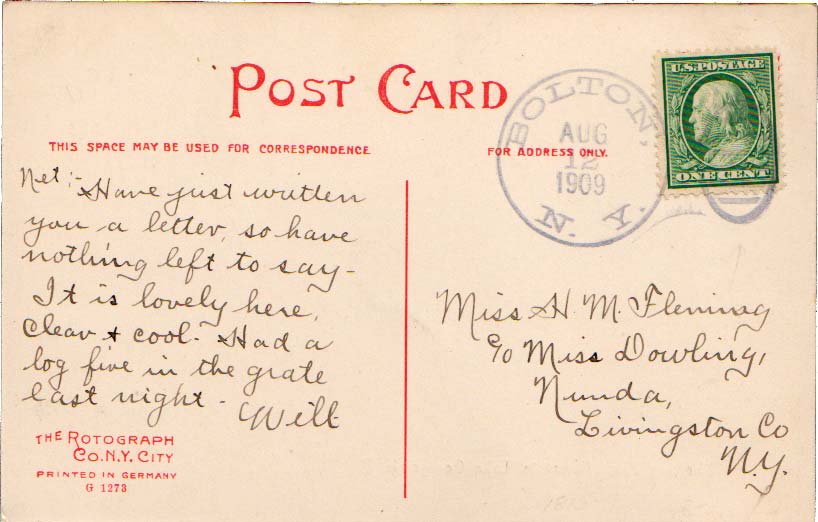 POST CARD
THIS SPACE MAY BE USED FOR CORRESPONDENCE
FOR ADDRESS ONLY.
BOLTON,
AUG
12
1909
N. Y.
U.S. POSTAGE
ONE CENT
Net:- Have just written
you a letter, so have
nothing left to say-
It is lovely here,
clear + cool. Had a
log fire in the grate
last night.
Will
THE ROTOGRAPH
CO. N.Y. CITY
PRINTED IN GERMANY
G 1273
Miss H. M. Fleming
c/o Miss Dowling,
Nunda,
Livingston Co
N.Y.